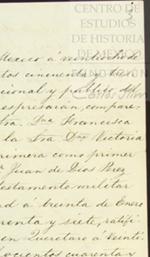 CENTRO DE
ESTUDIOS
DE HISTORIA
DE MEXICO
Mexico á veintiocho de
los cincuenta y
cional y publico del
espresarán, compare
Sra. Dña Francisca
la Sra Dña Victoria
primera como primer
Juan de Dios Perez
testamento militar
ad á treinta de Enero
renta y siete, ratifi
en Queretaro á Veinti
ocientos cuarenta y